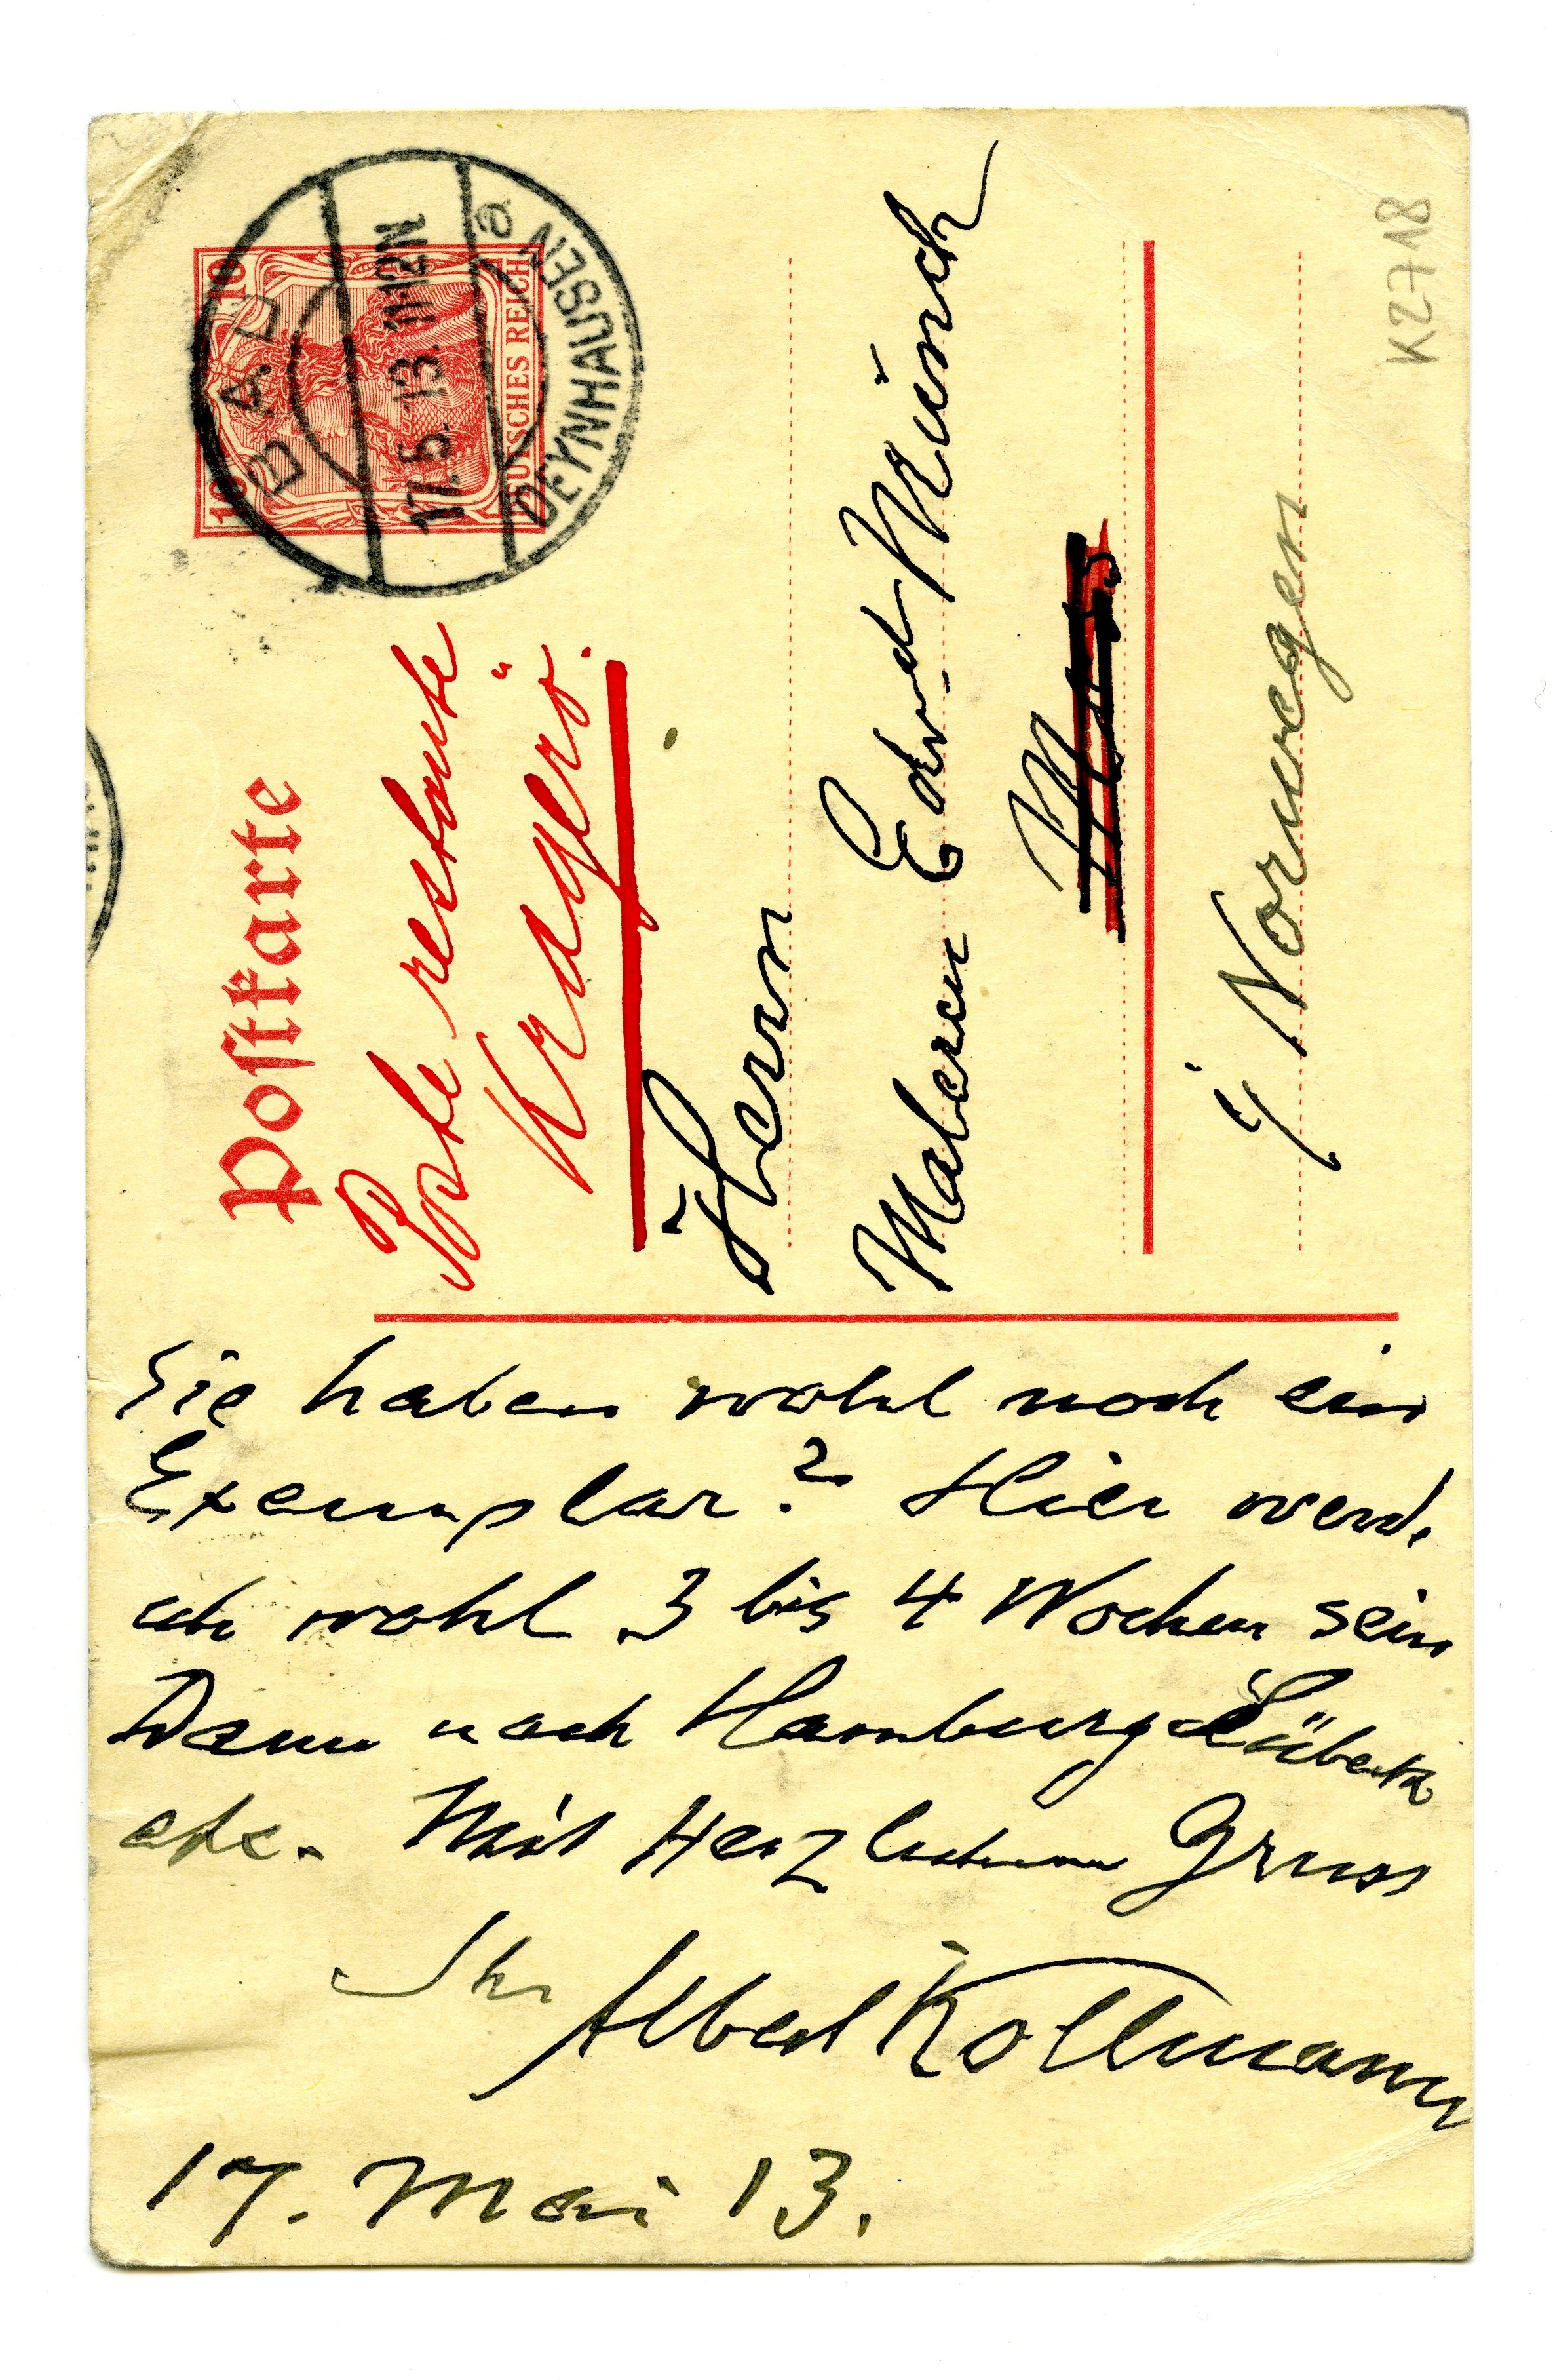 Postkarte
10 10
DEUTSCHES REICH
BAD OEYNHAUSEN a
17.5.13. 11-12N
Poste restante
Kragerö.
Herrn
Maleren Edvd Münch
i/ Norwegen
K2718
Sie haben wohl noch ein
Exemplar? Hier werd.
ich wohl 3 bis 4 Wochen sein
Dann nach Hamburg Lübeck
etc. Mit Herzlichem Gruss
Ihr
Albert Kollmann
17. Mai 13.